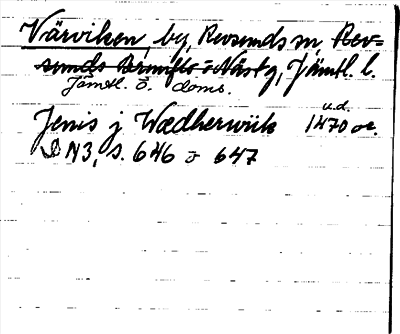 Värviken, by, Revsunds sn, Rev=
sunds Brunflo o Näs tg, Jämtl. l.
Jämtl. ö. doms.
Jenis j Wædherwiik 1470 oc.
u.d.
DN3, s. 646 o 647